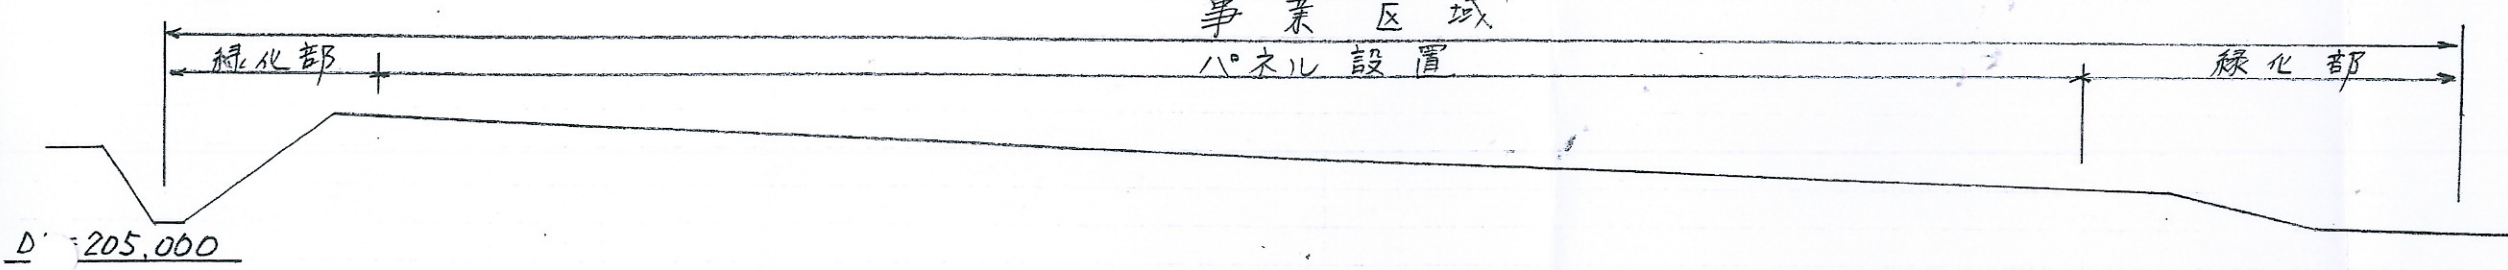 事業区域
緑化部 パネル設置 緑化部
D =205,000